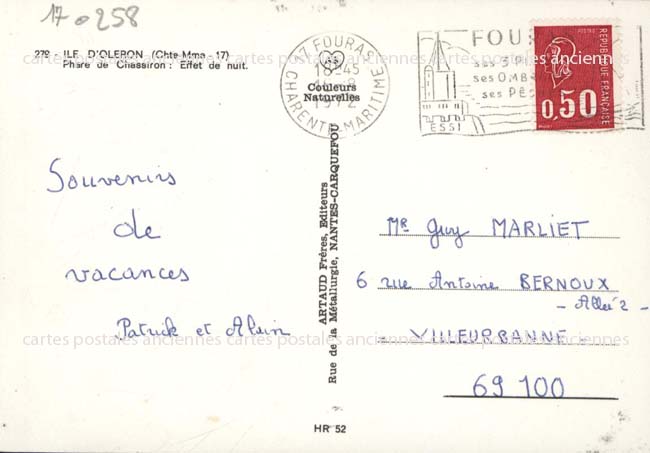 17-0258
279 - ILE D'OLERON (Chte-Mme - 17)
Phare de Chassiron : Effet de nuit.
17 FOURAS
18-45
CHARENTE-MARITIME
Couleurs
Naturelles
FOU
ses 3 PL
ses OMB
ses PÊ
ESSI
POSTES
REPUBLIQUE FRANÇAISE
0,50
cartes postales anciennes cartes postales anciennes cartes postales anciennes
Souvenirs
de
vacances
Patrick et Alain
ARTAUD Frères, Editeurs
Rue de la Métallurgie, NANTES-CARQUEFOU
Mr Guy MARLIET
6 rue Antoine BERNOUX
- Allée 2 -
VILLEURBANNE
69 100
cartes postales anciennes cartes postales anciennes cartes postales anciennes
HR 52